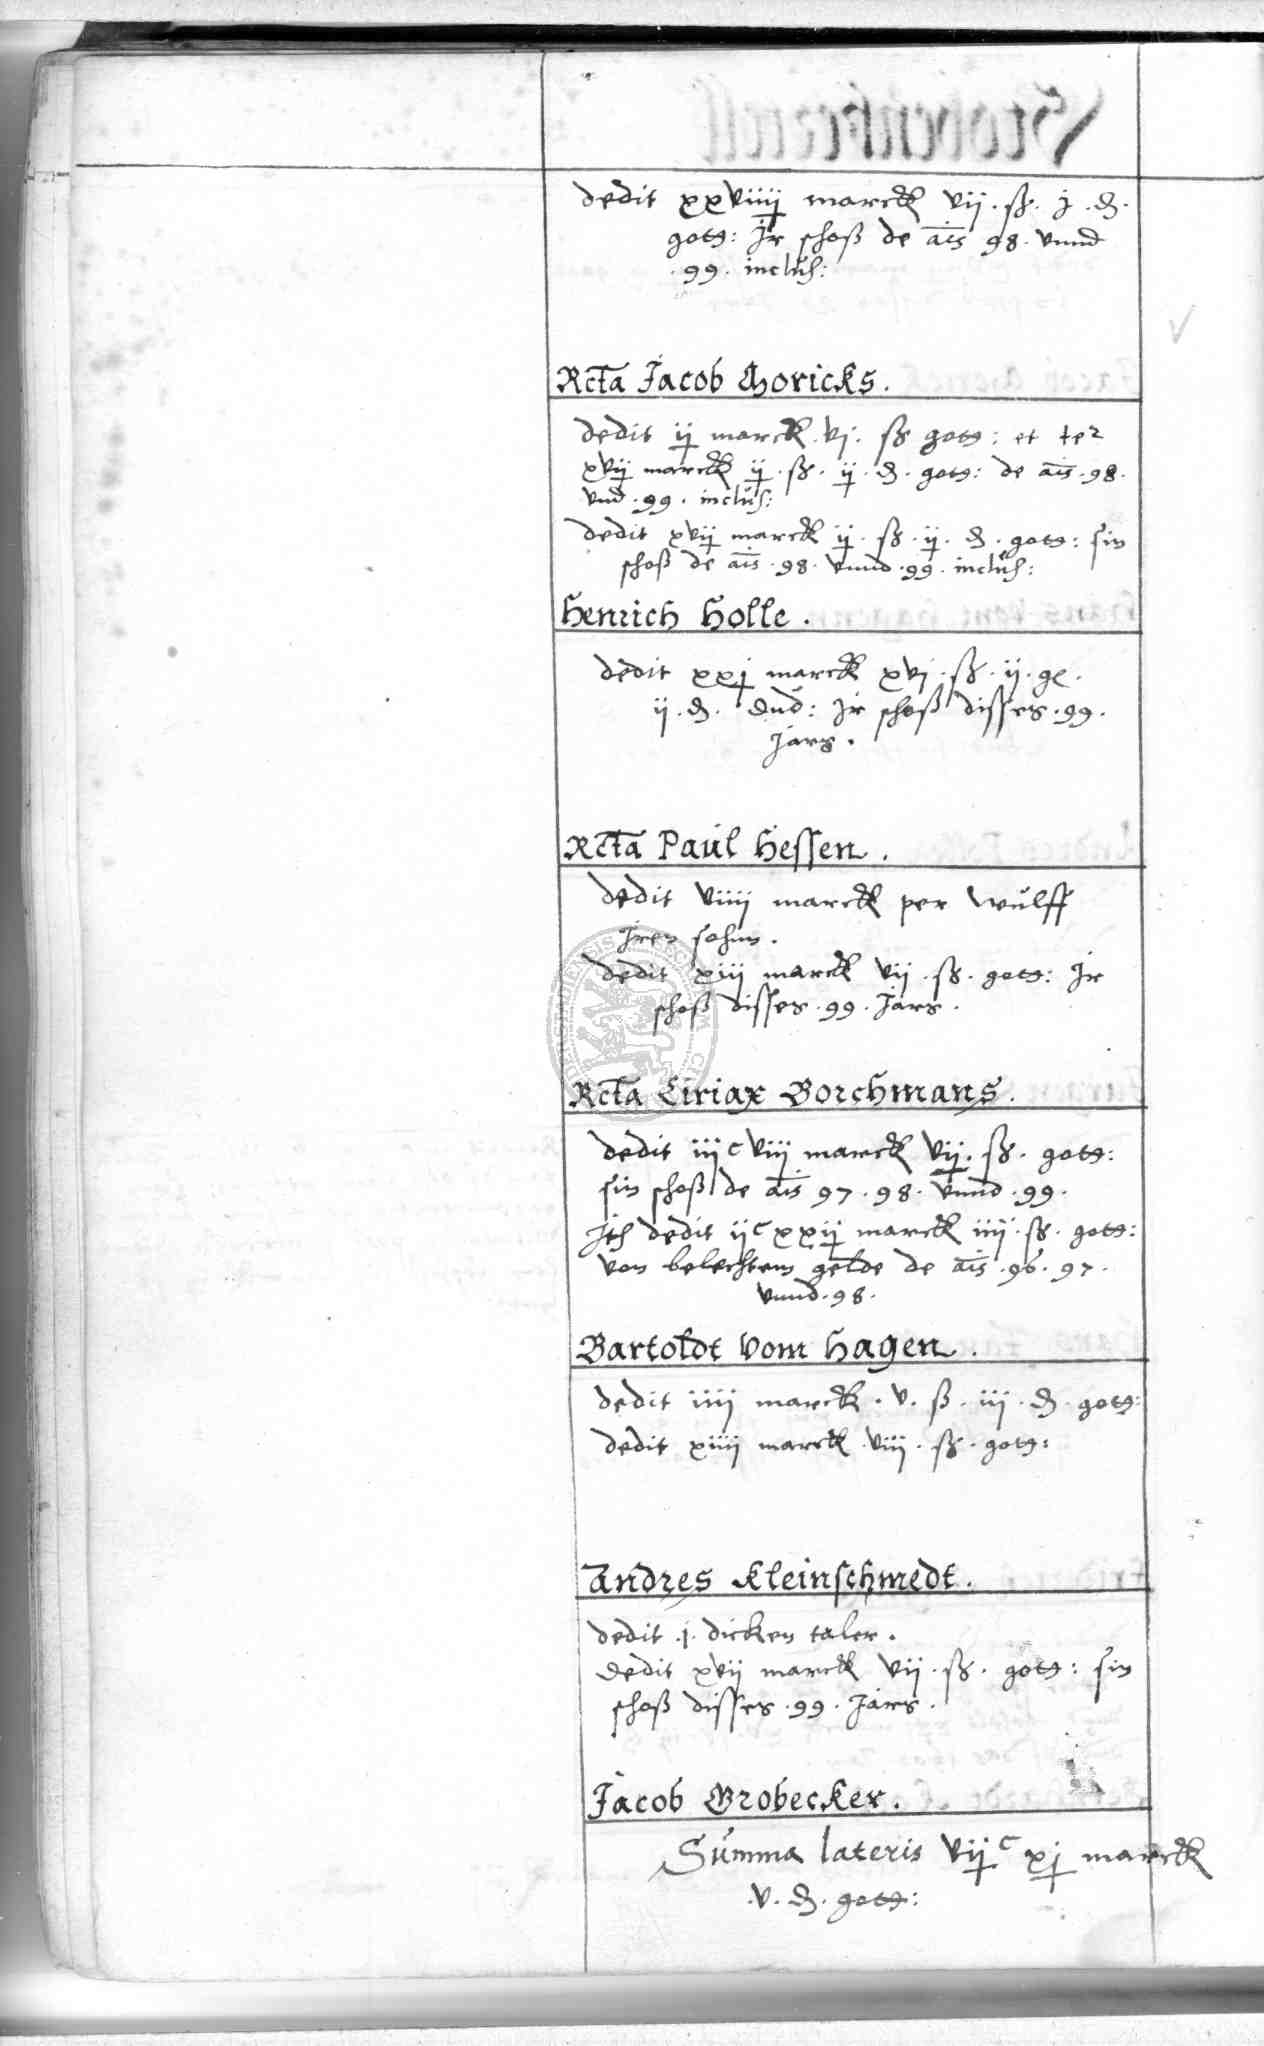 dedit xxviiij marck vij. ß. j. d.
gotg: Jr schoß de a͞is 98. vnnd
. 99. inclus:
Rcta Jacob Choricks.
dedit ij marck. vj. ß gotg: et ter
xvij marck ij. ß. ij. d. gotg: de a͞is. 98.
vnd. 99. inclus:
dedit xvij marck ij. ß. ij. d. gotg: sin
schoß de a͞is. 98. vnnd. 99. inclus:
Henrich Holle.
dedit xxj marck xvj. ß. ij. ge.
ij. d. Jr schoß disses. 99.
Jars.
Rcta Paul Hessen.
dedit viiij marck per Wulff
Jren sohnn.
dedit xiij marck vij. ß. gotg: Jr
schoß disses. 99. Jars.
Rcta Ciriax Borchmans.
dedit iijᶜ viij marck vij. ß. gotg:
sin schoß de a͞is 97. 98. vnnd. 99.
Jth dedit ijᶜ xxij marck iiij. ß. gotg:
von belechtem gelde de a͞is. 96. 97.
vnnd. 98.
Bartoldt vom Hagen.
dedit iiij marck. v. ß. iij. d. gotg:
dedit xiiij marck. viij. ß. gotg:
Andres Kleinschmedt.
dedit. j. dicken taler.
dedit xvij marck vij. ß. gotg: sin
schoß disses. 99. Jars.
Jacob Brobecker.
Summa lateris vijᶜ xj marck
. v. d. gotg: